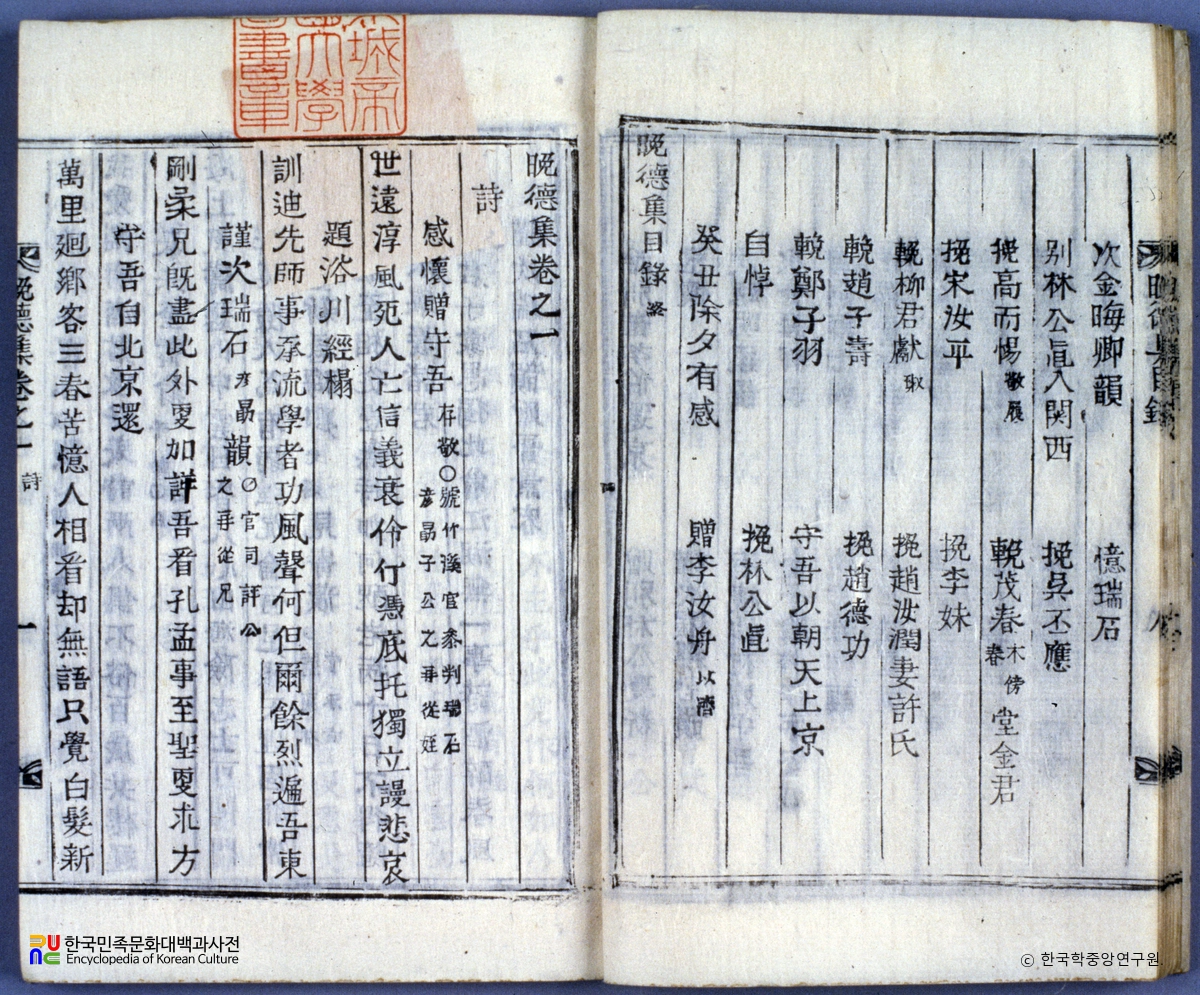 次金晦卿韻 憶瑞石
別林公直入関西 挽吳丕應
挽高而惕敬履 輓茂春木傍春堂金君
挽宋汝平 挽李妹
輓柳君獻 挽趙汝潤妻許氏
輓趙子壽 挽趙德功
輓鄭子羽 守吾以朝天上京
自悼 挽林公直
癸丑除夕有感 贈李汝舟以濟
晩德集目錄終
晩德集卷之一
詩
感懷贈守吾存敬○號竹溪官參判瑞石彦勗子公之再從姪
世遠淳風死人亡信義衰伶仃憑底托獨立謾悲哀
題浴川經榻
訓迪先師事承流學者功風聲何但爾餘烈遍吾東
謹次瑞石彦勗韻○官司評公之再從兄
剛柔兄旣盡此外更加詳吾看孔孟事至聖更求方
守吾自北京還
萬里廻鄉客三春苦憶人相看却無語只覺白髮新
晩德集卷之一 詩 一
한국민족문화대백과사전
Encyclopedia of Korean Culture
ⓒ 한국학중앙연구원